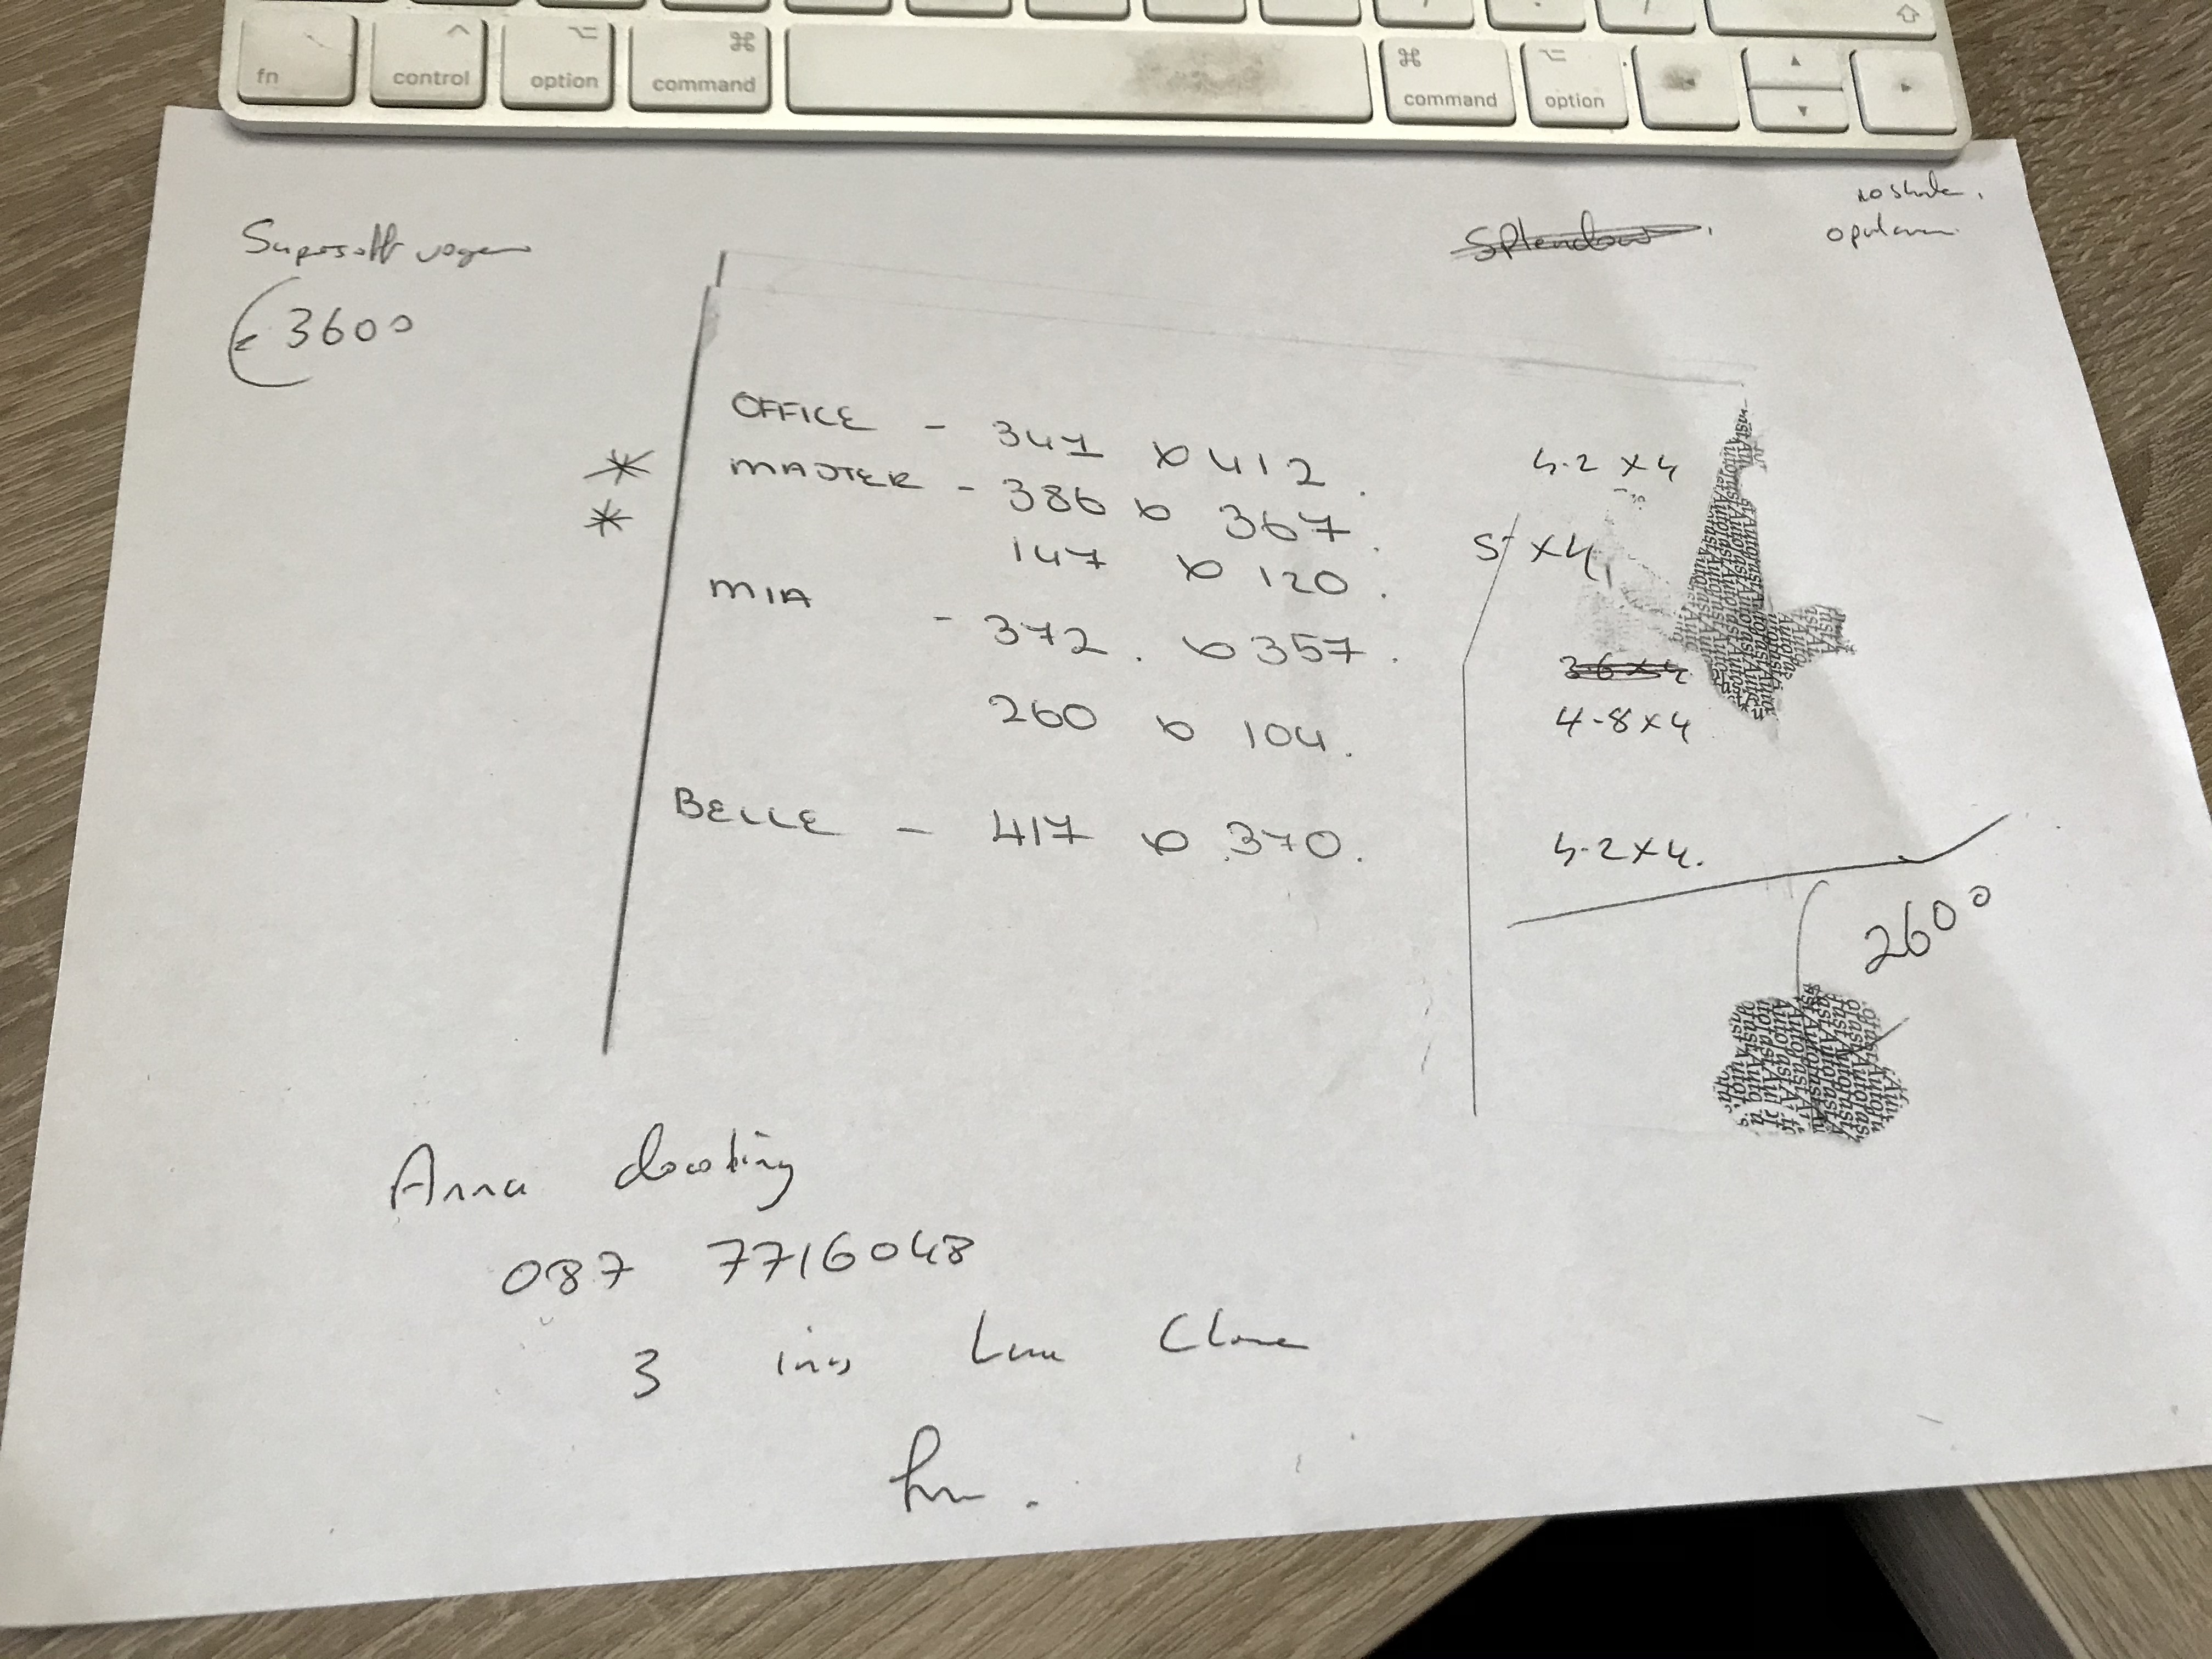 fn control option command command option
Supersoft
€3600
Splendour
OFFICE - 341 x 412.
MASTER - 386 x 367.
147 x 120.
MIA - 372. x 357.
260 x 104.
BELLE - 417 x 370.
4.2 x 4
5 x 4
3.6 x 4
4.8 x 4
4.2 x 4.
2600
Anna
087 7716048
3 Close